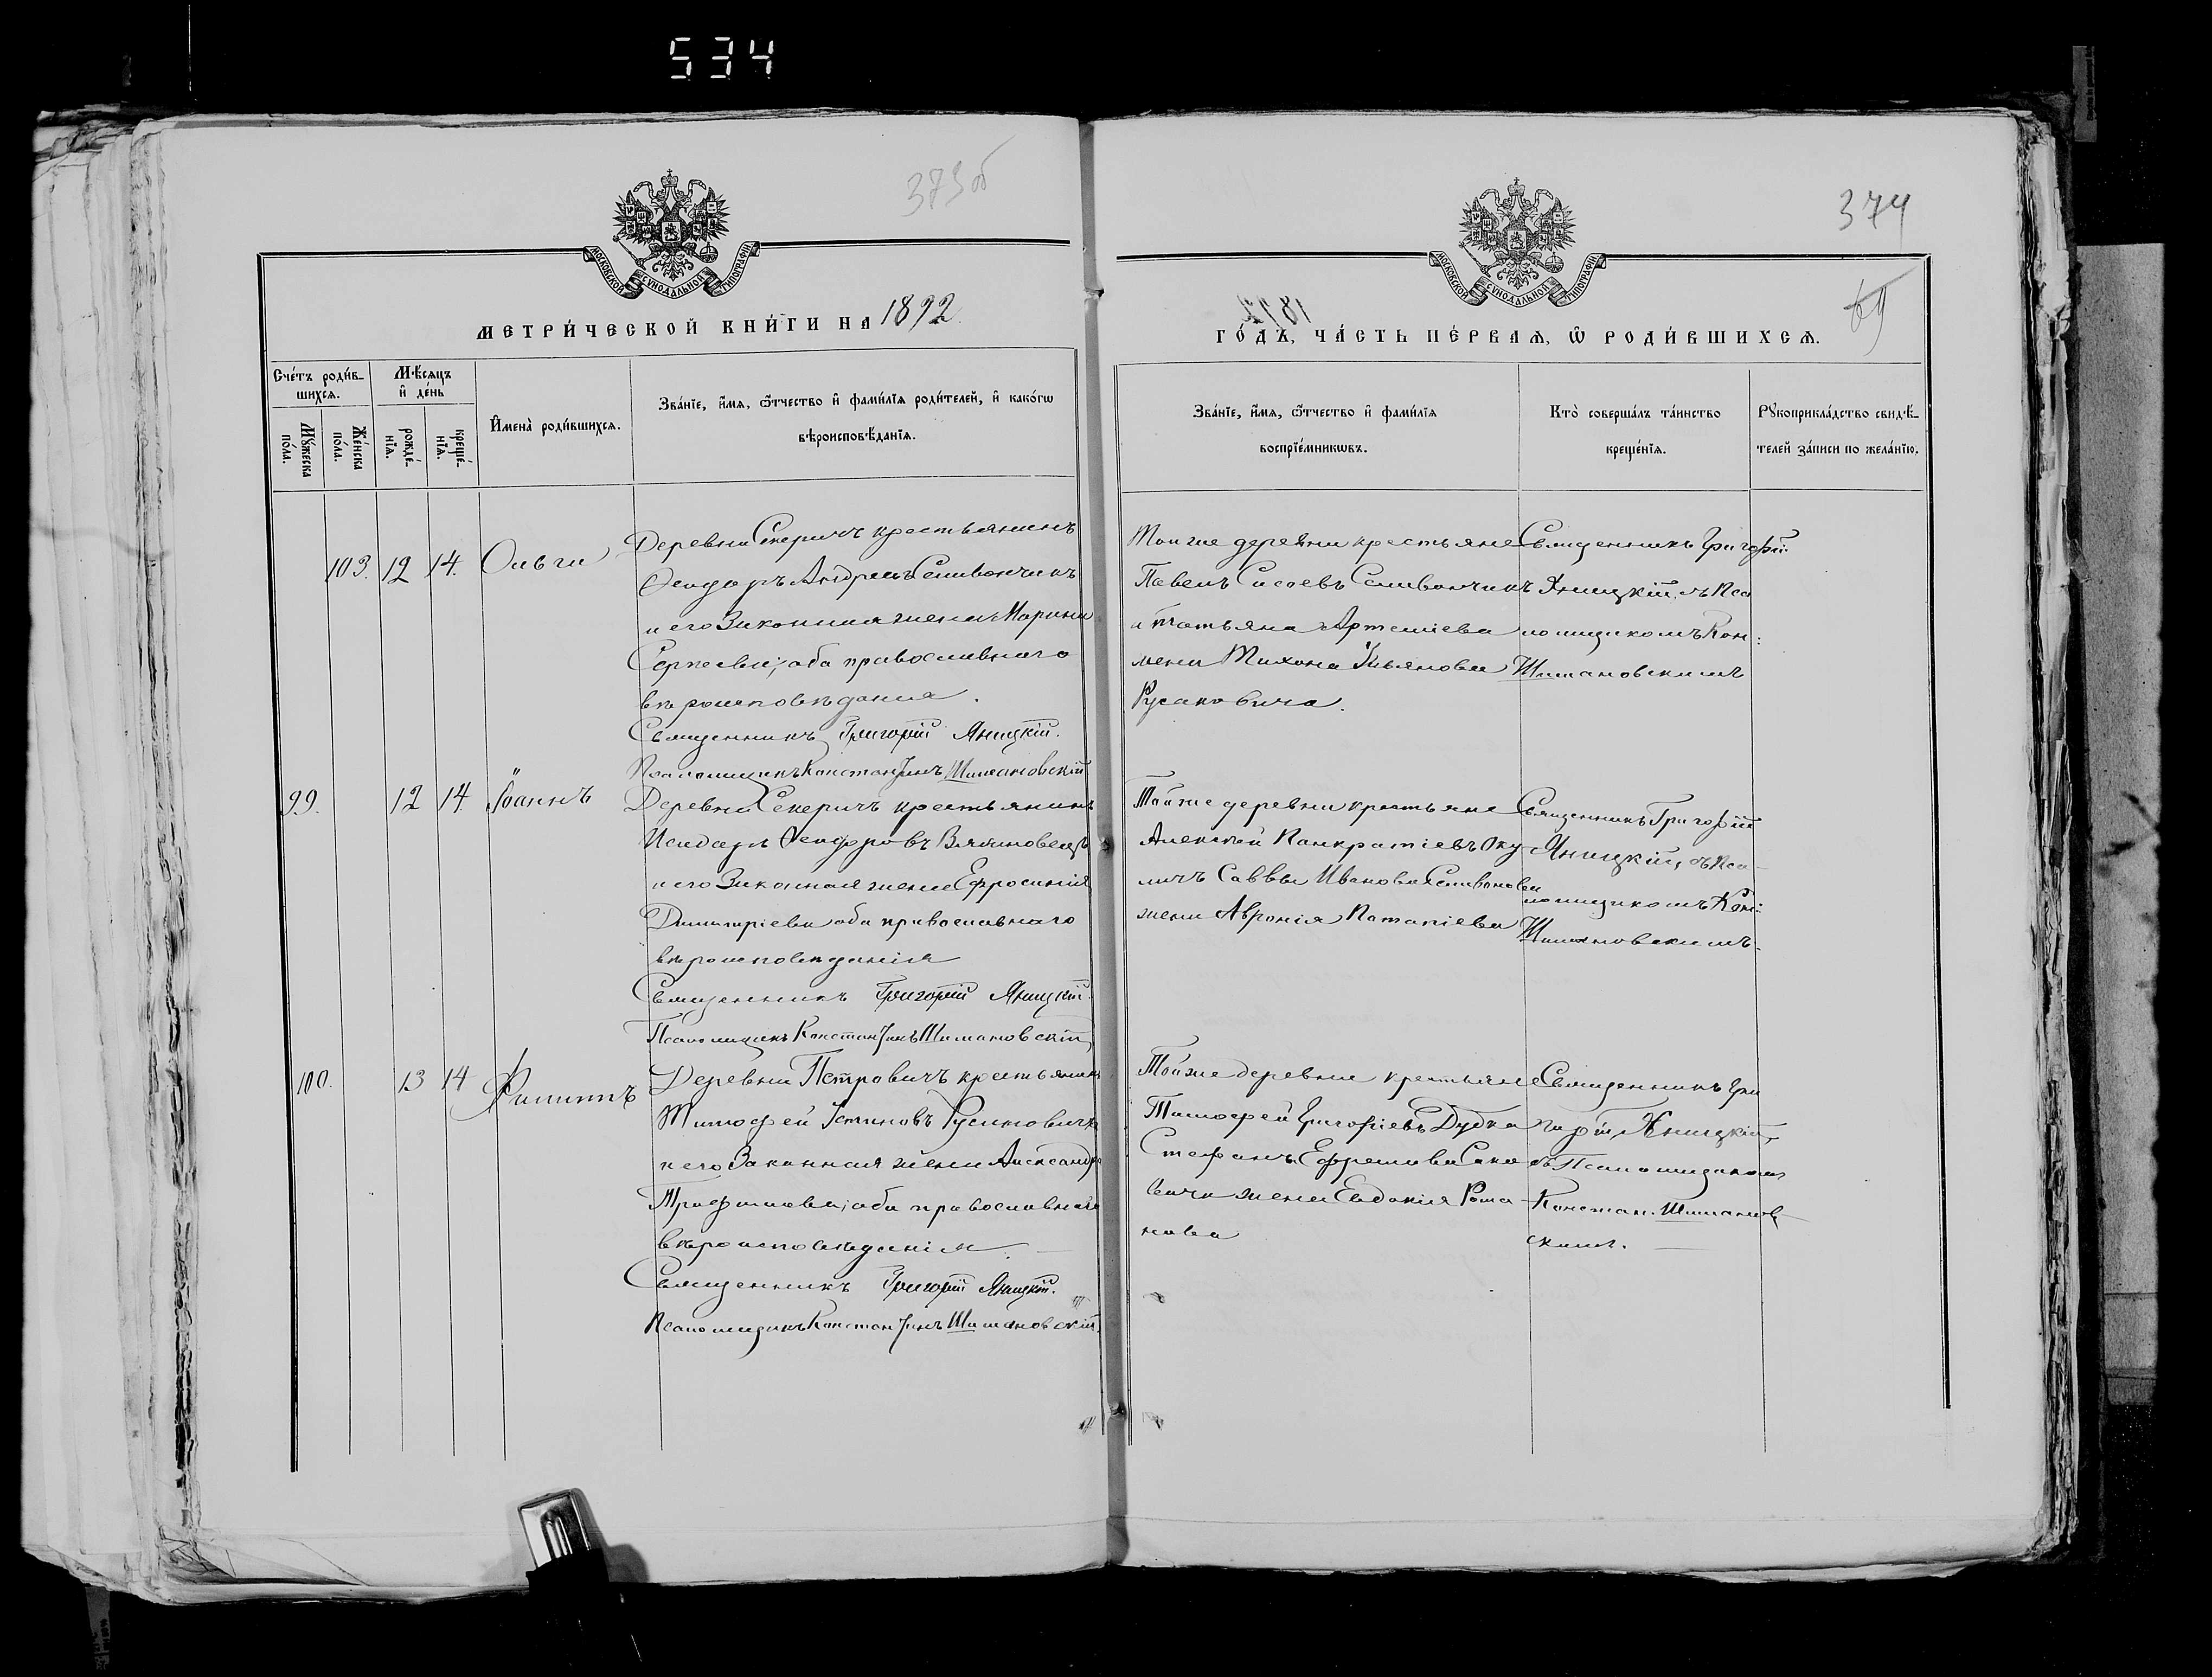 534
373об
374
69
МОСКОВСКОЙ СѴНОДАЛЬНОЙ ТИПОГРАФІИ
МОСКОВСКОЙ СѴНОДАЛЬНОЙ ТИПОГРАФІИ
МЕТРИ́ЧЕСКОЙ КНИ́ГИ НА 1892
ГО́ДЪ, ЧА́СТЬ ПЕ́РВАѦ, Ѿ РОДИ́ВШИХСѦ.
Сче́тъ роди́в-
шихсѧ.
Мꙋ́жеска
по́ла.
Же́нска
по́ла.
Мѣ́сѧцъ
и҆ де́нь
рожде́-
нїѧ.
креще́-
нїѧ.
И҆мена̀ роди́вшихсѧ.
Зва́нїе, и҆́мѧ, ѻ҆́тчество и҆ фами́лїѧ роди́телей, и҆ како́гѡ
вѣроисповѣ́данїѧ.
Зва́нїе, и҆́мѧ, ѻ҆́тчество и҆ фами́лїѧ
воспрїе́мникѡвъ.
Кто̀ соверша́лъ та́инство
креще́нїѧ.
Рꙋкоприкла́дство свидѣ́-
телей за́писи по жела́нїю.
103. 12 14. Ольга
Деревни Секеричъ крестьянинъ
Ѳеодоръ Андреевъ Селивончикъ
и его Законная жена Марина
Сергеева, оба православнаго
вѣроисповѣдания.
Священникъ Григорій Яницкій.
Псаломщикъ Константинъ Шимановскій
Той же деревни крестьяне
Павелъ Сисоевъ Селивончикъ
и Татьяна Артеміева
жена Тихона Ульянова
Русаковича.
Священникъ Григорій
Яницкій, съ Пса
ломщикомъ Кон:
Шимановскимъ
99. 12 14 Іоаннъ
Деревни Секеричъ крестьянинъ
Исидоръ Ѳеодоровъ
и его Законная жена Ефросинія
Димитріева оба православнаго
вѣроисповѣданія
Священникъ Григорій Яницкій.
Псаломщикъ Константинъ Шимановскій
Той же деревни крестьяне
Алексей Панкратіевъ Оку
личъ Саввы Иванова
жена Авронія Потапіева
Священникъ Григорій
Яницкій, съ Пса-
ломщикомъ Кон:
Шимановскимъ.
100. 13 14 Филиппъ
Деревни Петровичъ крестьянинъ
Тимофей Устиновъ Русаковичъ
и его Законная жена Александра
оба православнаго
вѣроисповѣданія.
Священникъ Григорій Яницкій.
Псаломщикъ Константинъ Шимановскій.
Той же деревни крестьяне
Тимофей Григоріевъ Дудка
Стефана Ефремова Сако
вича жена Евдокія Рома
нова
Священникъ Гри
горій Яницкій,
съ Псаломщикомъ
Констан. Шиманов
скимъ.